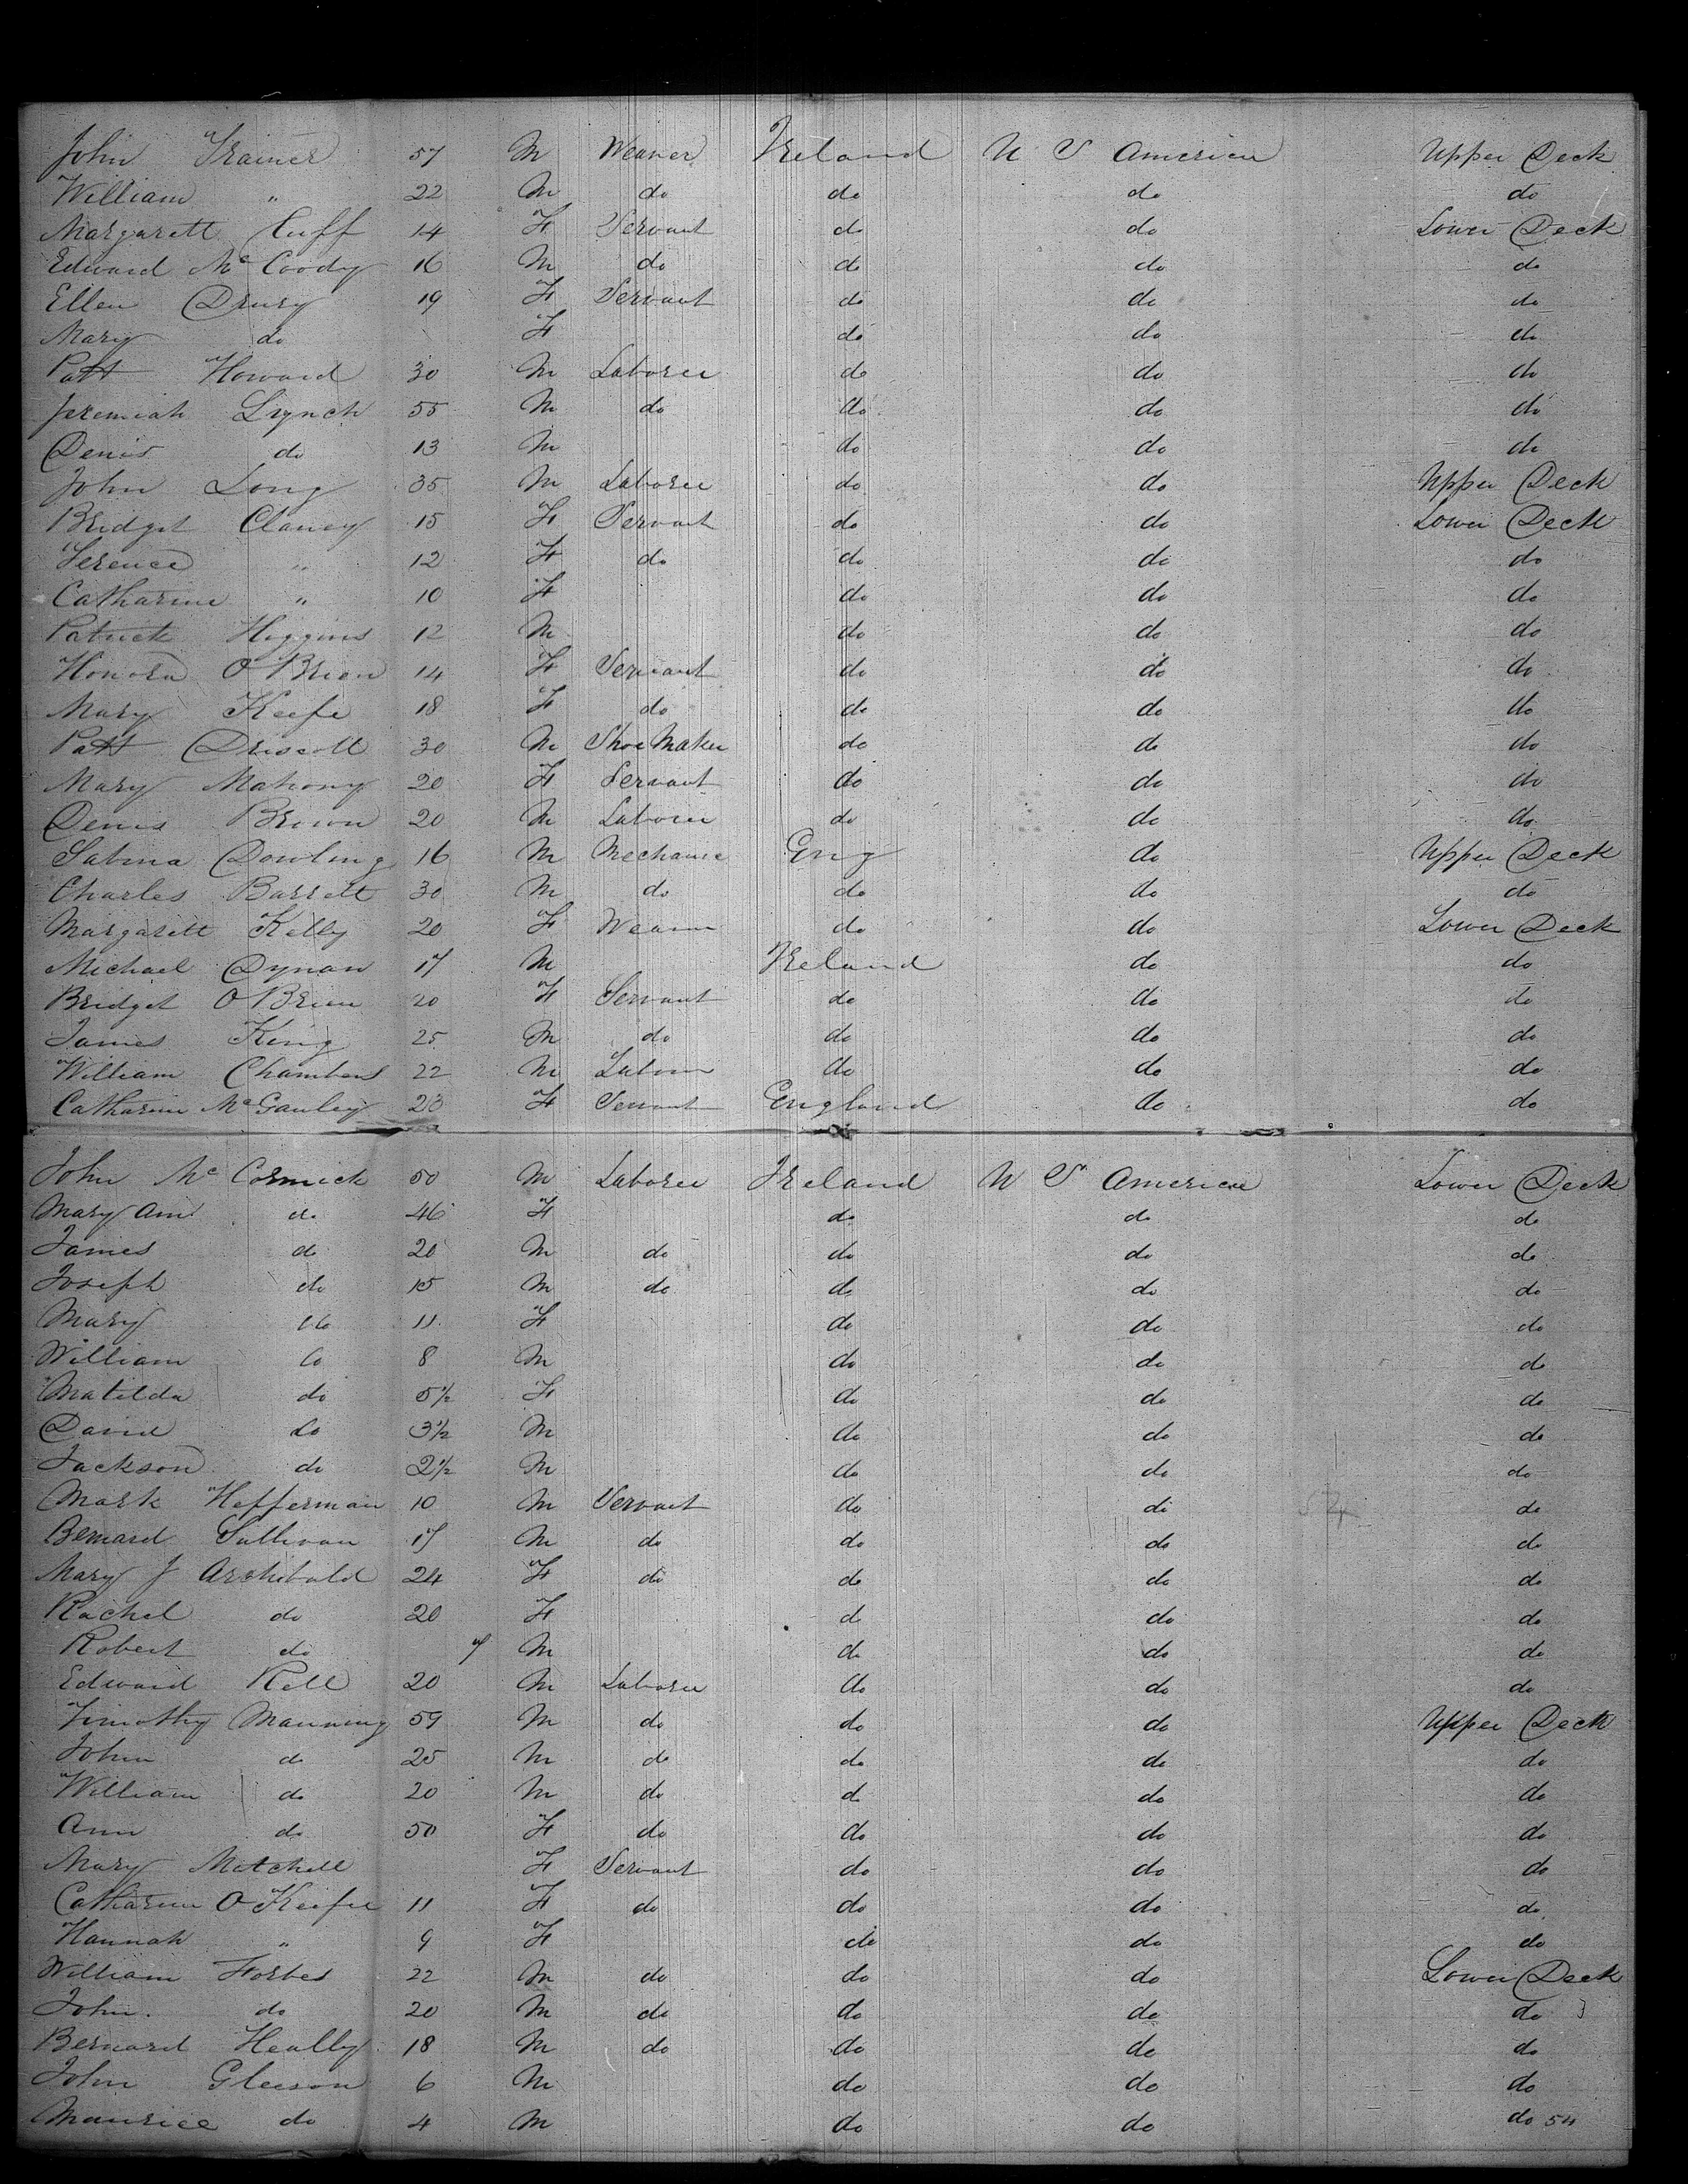 John Trainer 57 M Weaver Ireland U S America Upper Deck
William " 22 M do do do do
Margarett Cuff 14 F Servant do do Lower Deck
Edward Mc Coody 16 M do do do do
Ellen Drury 19 F Servant do do do
Mary do F do do do
Patt Howard 30 M Laborer do do do
Jeremiah Lynch 55 M do do do do
Denis do 13 M do do do
John Long 35 M Laborer do do Upper Deck
Bridget Clancy 15 F Servant do do Lower Deck
Terence " 12 F do do do do
Catharine " 10 F do do do
Patrick Higgins 12 M do do do
Honora O Brien 14 F Servant do do do
Mary Keefe 18 F do do do do
Patt Driscoll 30 M Shoe Maker do do do
Mary Mahony 20 F Servant do do do
Denis Brown 20 M Laborer do do do
Sabina Dowling 16 M Mechanic Eng do Upper Deck
Charles Barrett 30 M do do do do
Margarett Kelly 20 F Weaver do do Lower Deck
Michael Dynan 17 M Ireland do do
Bridget O Brien 20 F Servant do do do
James King 25 M do do do do
William Chambers 22 M Laborer do do do
Catharine Mc Gauley 20 F Servant England do do
John Mc Cormick 50 M Laborer Ireland U S America Lower Deck
Mary Ann do 46 F do do do
James do 20 M do do do do
Joseph do 15 M do do do do
Mary do 11 F do do do
William do 8 M do do do
Matilda do 5½ F do do do
David do 3½ M do do do
Jackson do 2½ M do do do
Mark Hefferman 10 M Servant do do do
Bernard Sullivan 17 M do do do do
Mary J Archibald 24 F do do do do
Rachel do 20 F do do do
Robert do 7 M do do do
Edward Rell 20 M Laborer do do do
Timothy Manning 59 M do do do Upper Deck
John do 25 M do do do do
William do 20 M do do do do
Ann do 50 F do do do do
Mary Mitchell F Servant do do do
Catharine O Keefe 11 F do do do do
Hannah " 9 F do do do
William Forbes 22 M do do do Lower Deck
John do 20 M do do do do
Bernard Heally 18 M do do do do
John Gleeson 6 M do do do
Maurice do 4 M do do do 54